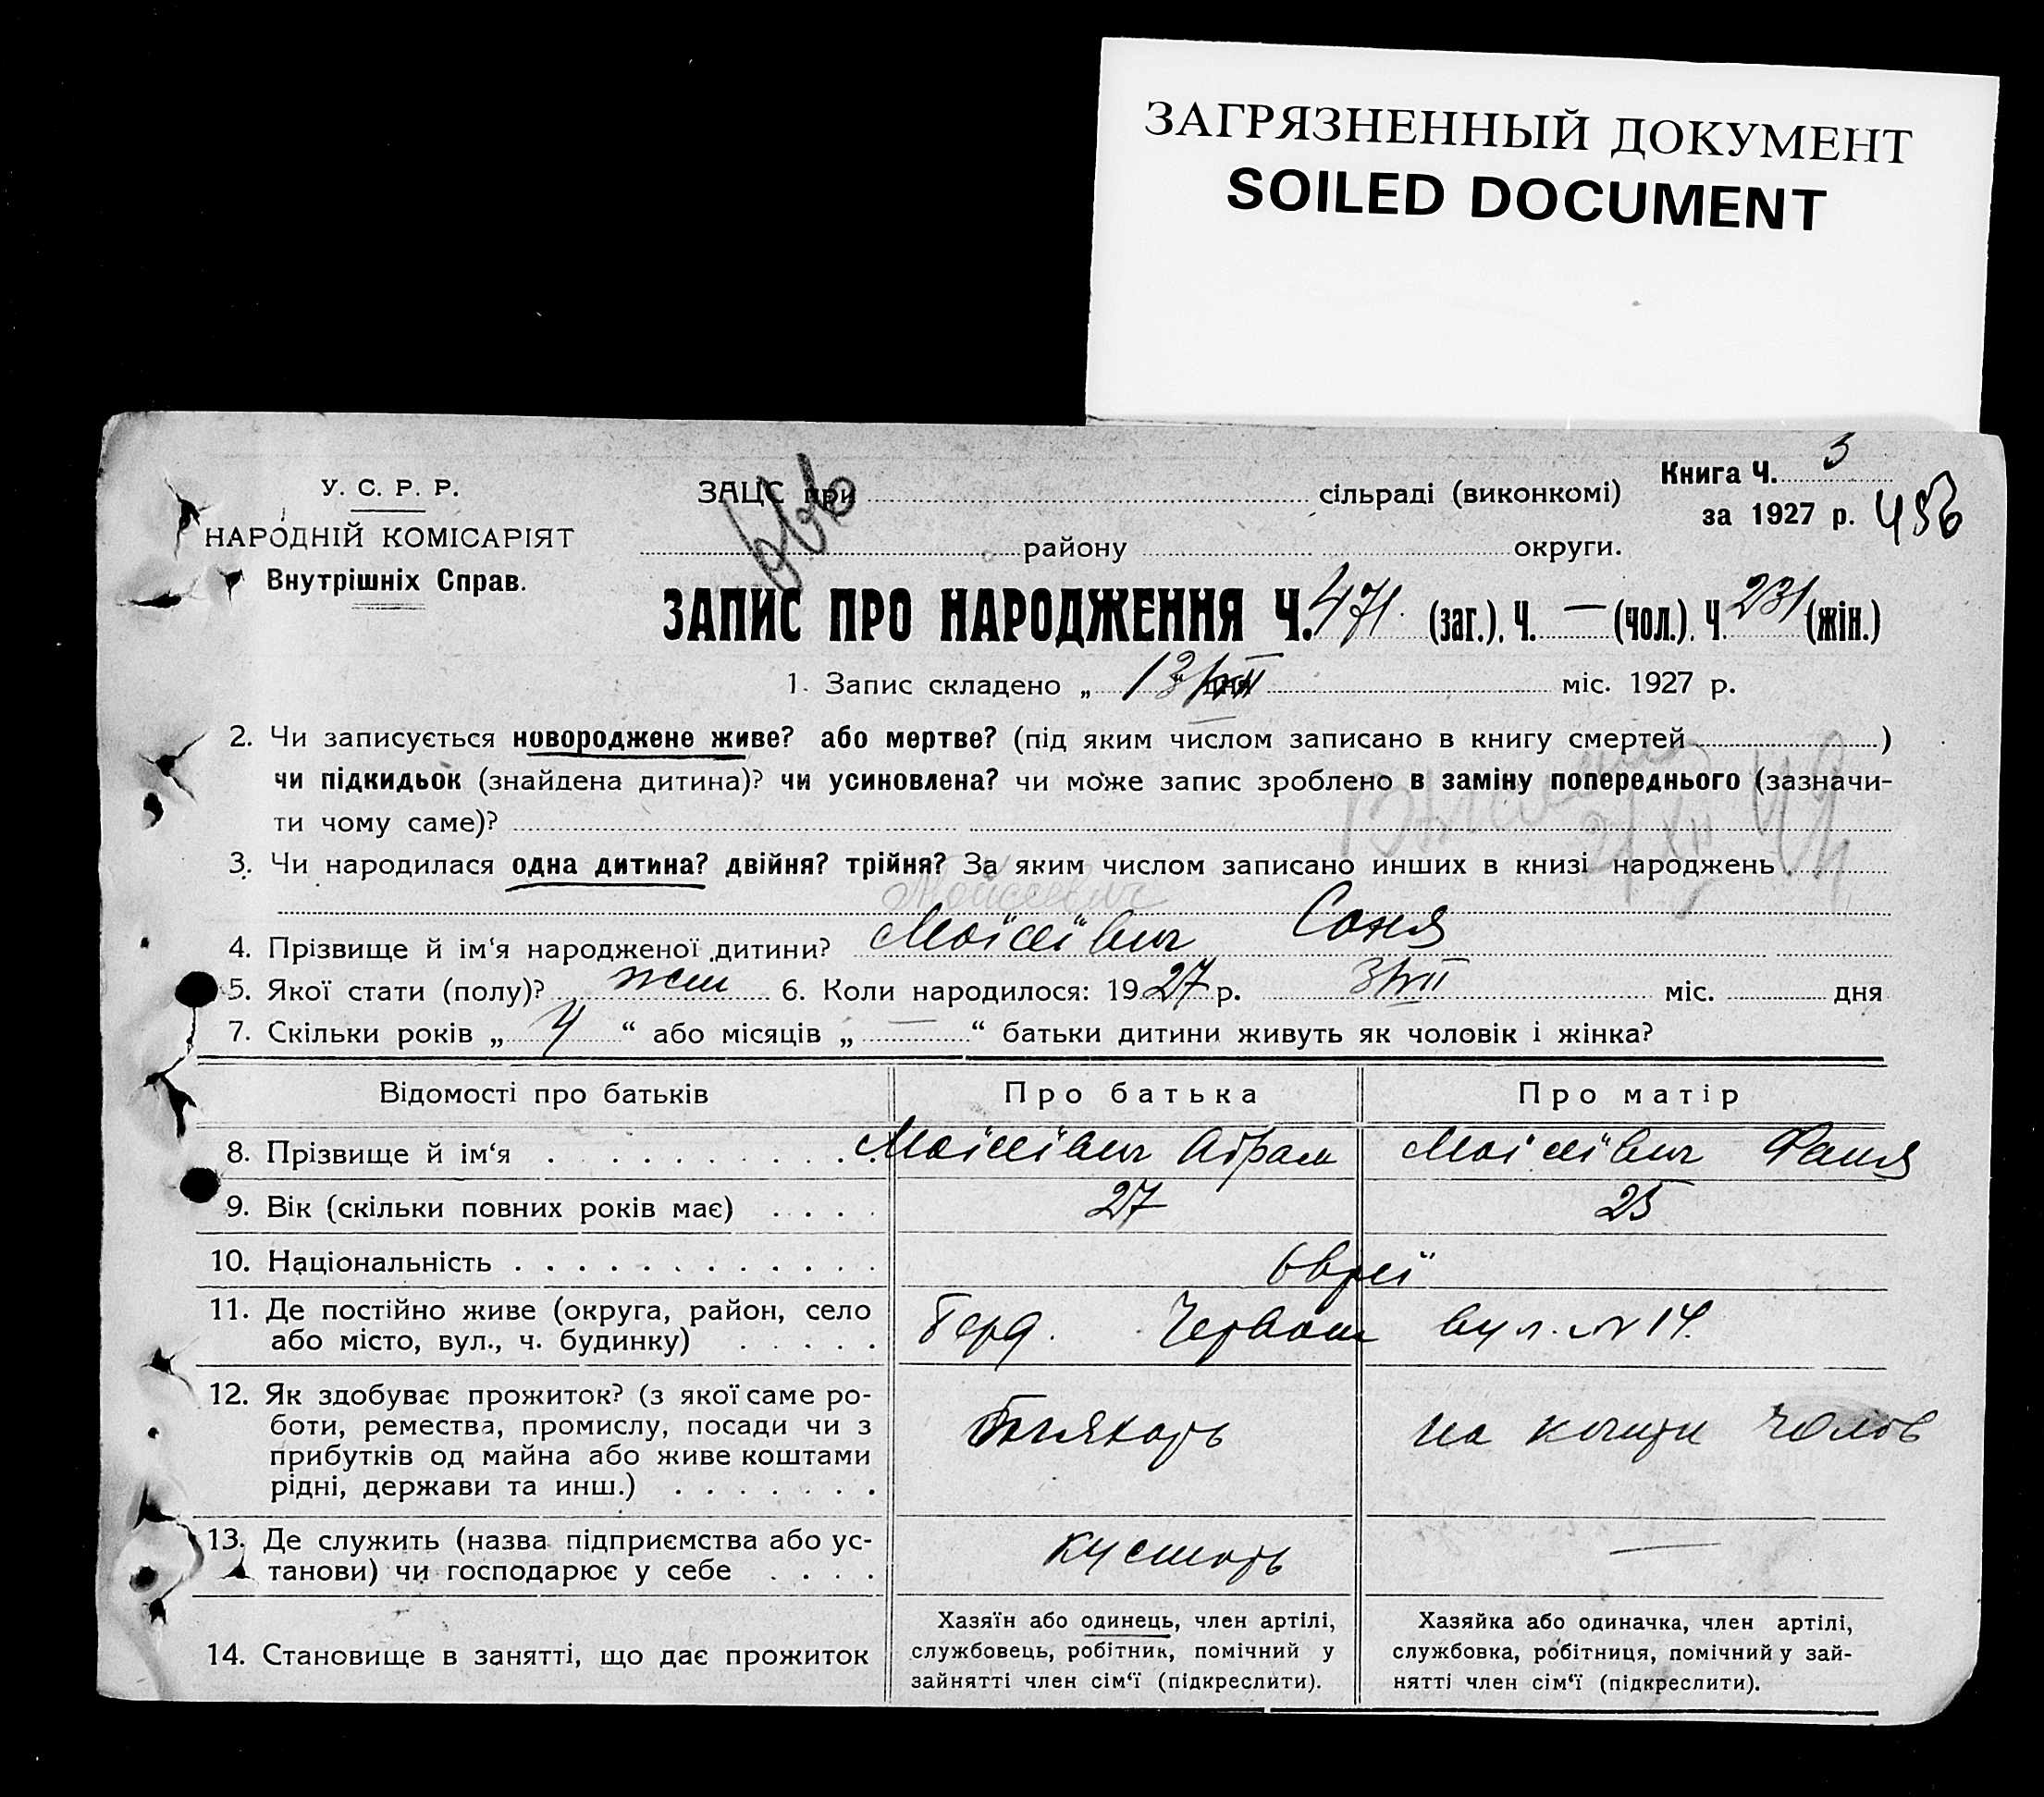 ЗАГРЯЗНЕННЫЙ ДОКУМЕНТ
SOILED DOCUMENT
У. С. Р. Р.
НАРОДНІЙ КОМІСАРІЯТ
Внутрішніх Справ.
ЗАЦС при сільраді (виконкомі)
району округи.
Книга Ч. 3
за 1927 р. 456
ЗАПИС ПРО НАРОДЖЕННЯ Ч. 471. (заг.). Ч. — (чол.). Ч. 231 (жін.)
1. Запис складено „ 13/VII “ дня міс. 1927 р.
2. Чи записується новороджене живе? або мертве? (під яким числом записано в книгу смертей )
чи підкидьок (знайдена дитина)? чи усиновлена? чи може запис зроблено в заміну попереднього (зазначи-
ти чому саме)?
3. Чи народилася одна дитина? двійня? трійня? За яким числом записано инших в книзі народжень
Мойсеевич
4. Прізвище й ім‘я народженої дитини? Моісеівич Соня
5. Якої стати (полу)? жін 6. Коли народилося: 1927 р. 3/VII міс. дня
7. Скільки років „ 4 “ або місяців „ — “ батьки дитини живуть як чоловік і жінка?
Відомості про батьків Про батька Про матір
8. Прізвище й ім‘я Моісеівич Абрам Моісеівич Фаня
9. Вік (скільки повних років має) 27 25
10. Національність євреї
11. Де постійно живе (округа, район, село
або місто, вул., ч. будинку) Берд. Червон вул. № 14.
12. Як здобуває прожиток? (з якої саме ро-
боти, ремества, промислу, посади чи з
прибутків од майна або живе коштами
рідні, держави та инш.) Бляхарь на кошти чолов
13. Де служить (назва підприємства або ус-
танови) чи господарює у себе кустарь —
14. Становище в занятті, що дає прожиток
Хазяїн або одинець, член артілі,
службовець, робітник, помічний у
зайнятті член сім‘ї (підкреслити).
Хазяйка або одиначка, член артілі,
службовка, робітниця, помічний у зай-
нятті член сім‘ї (підкреслити).